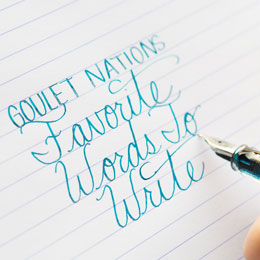 GOULET NATIONS
Favorite
Words To
Write